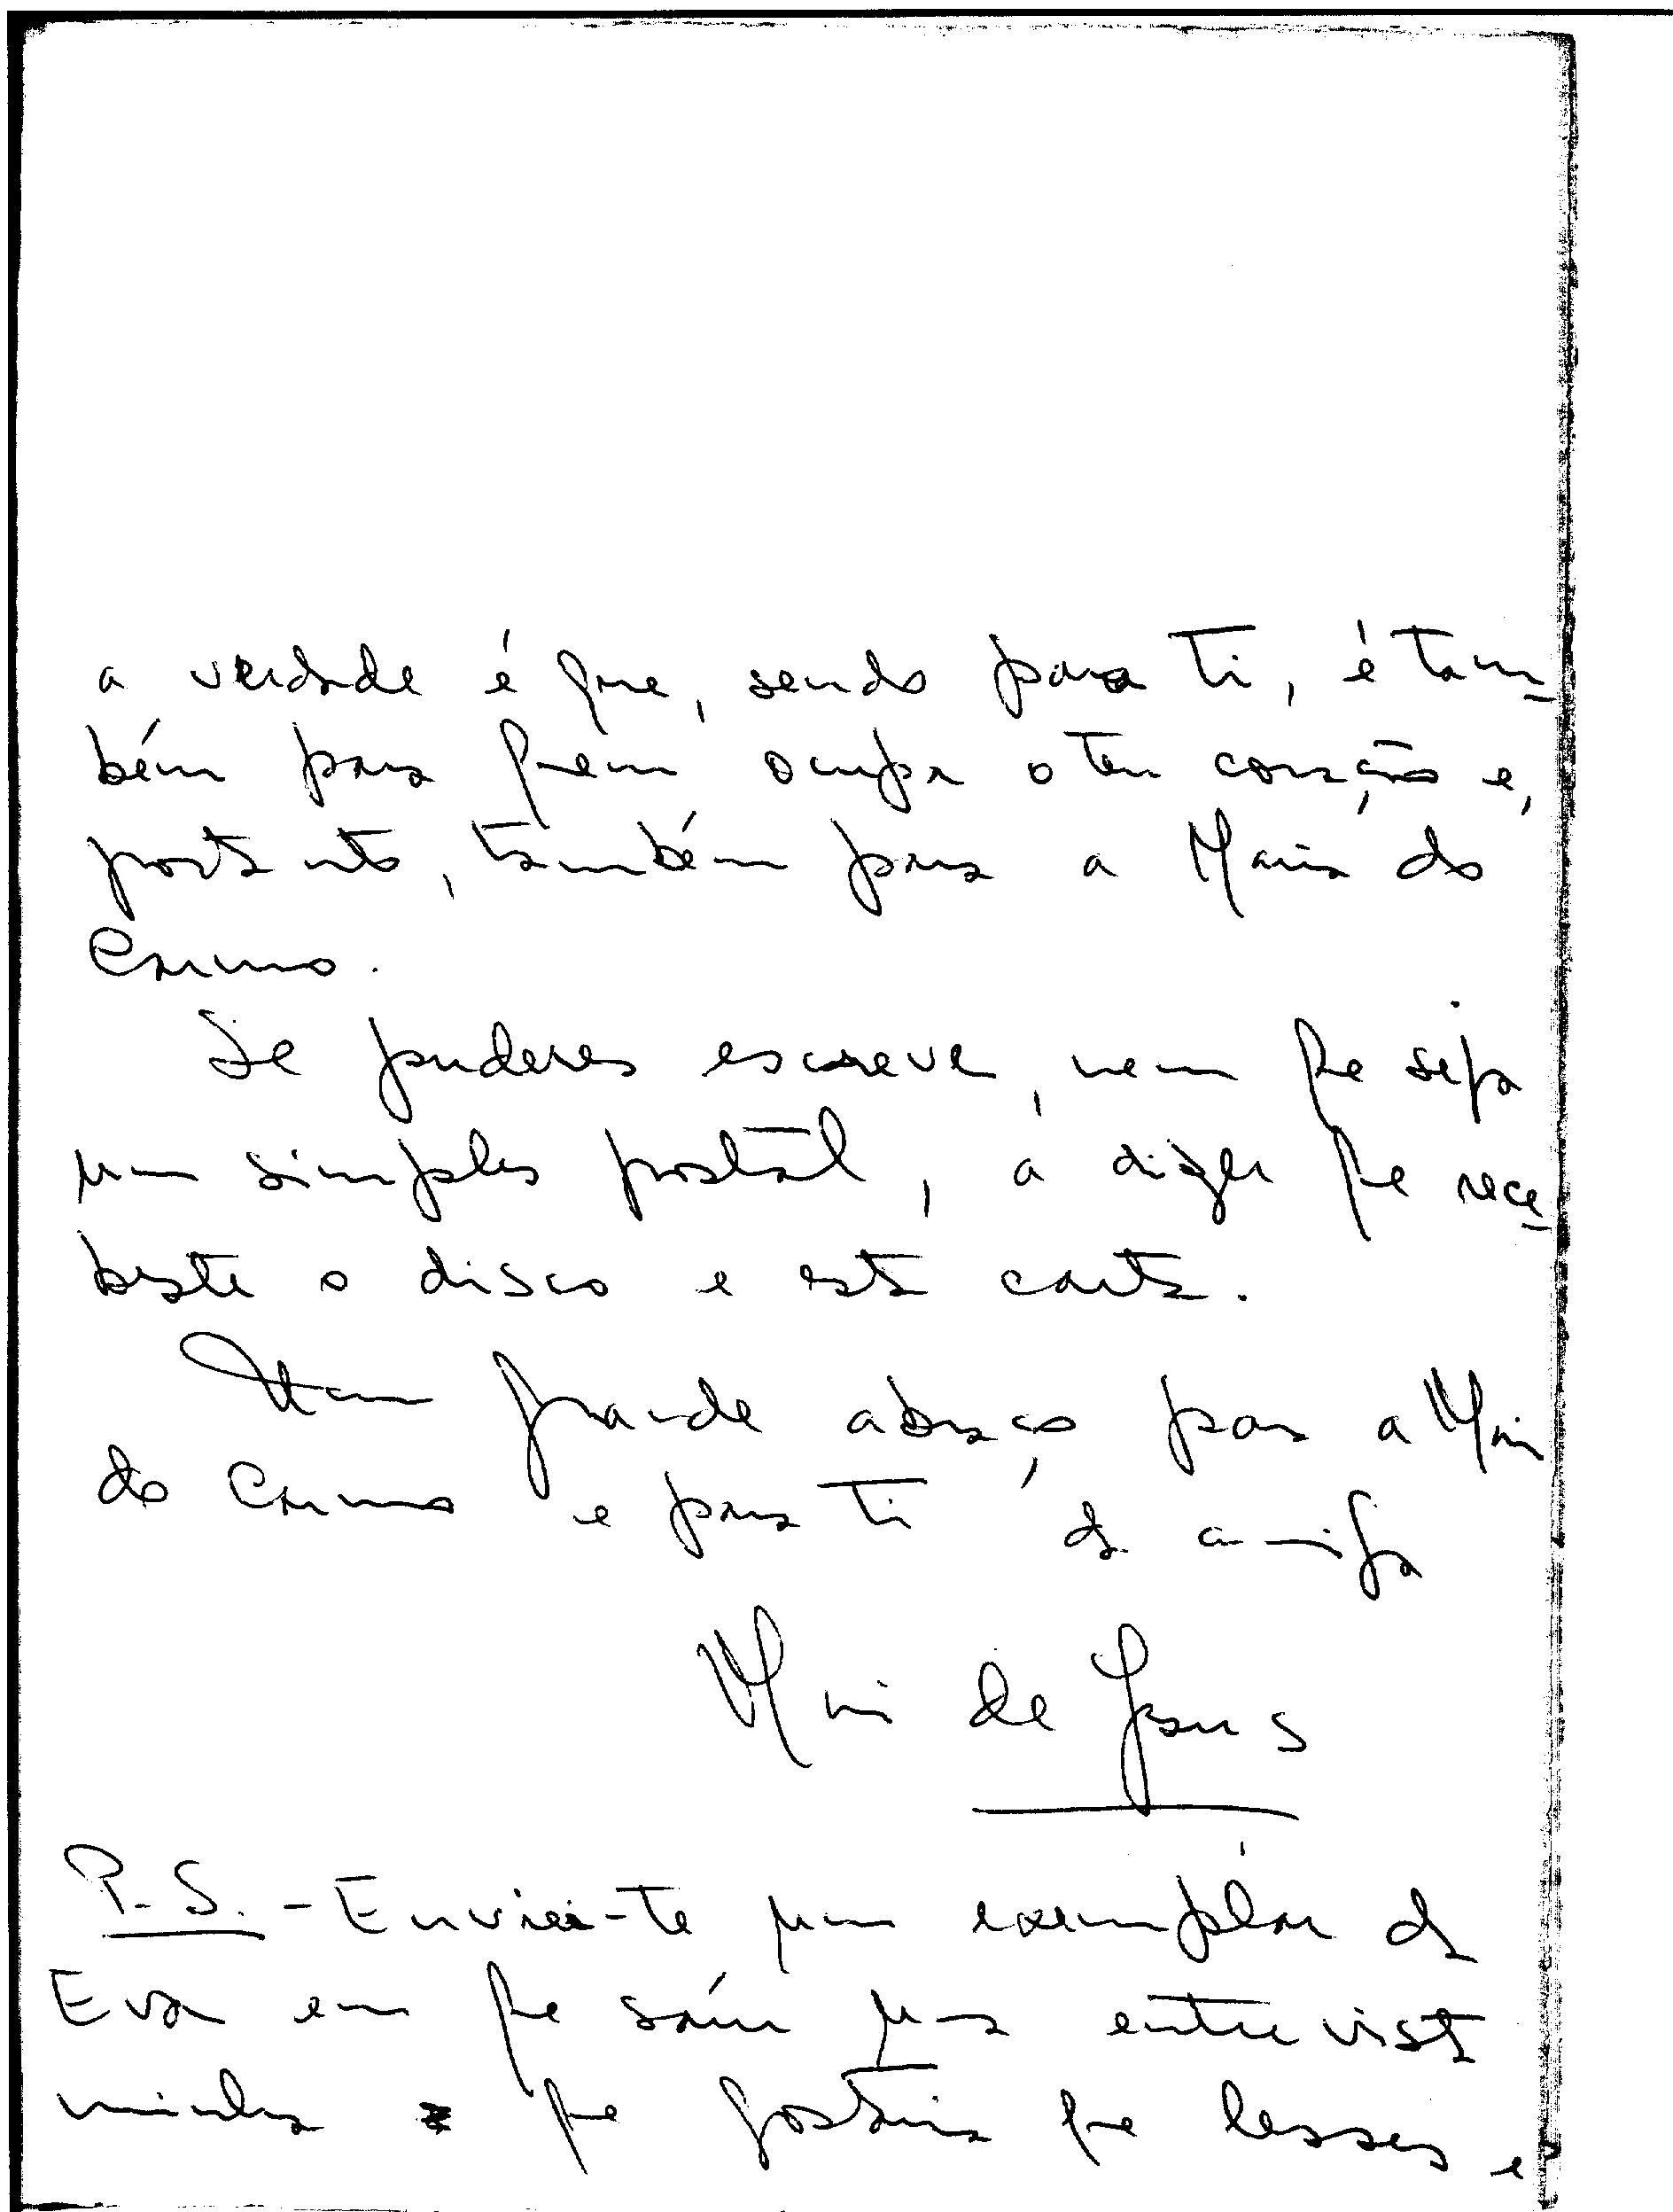 a verdade é que, sendo para ti, é tam-
bém para quem ocupa o teu coração e,
portanto, também para a Maria do
Carmo.
Se puderes escreve, nem que seja
um simples postal, a dizer que rece-
beste o disco e esta carta.
Um grande abraço para a Maria
do Carmo e para ti da amiga
Maria de Jesus
P.S. - Enviei-te um exemplar da
Eva em que saíu uma entrevista
minha que gostaria que lesses e